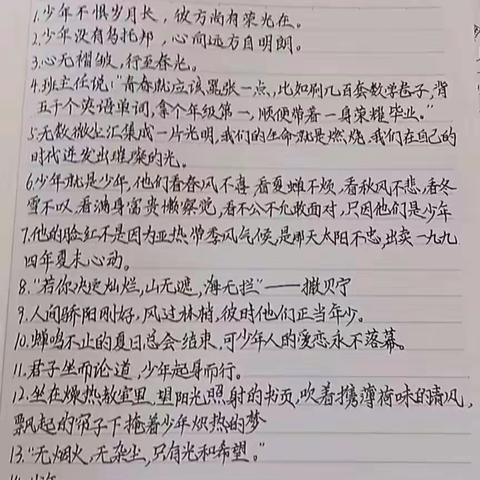 1.少年不惧岁月长，彼方尚有荣光在。
2.少年没有乌托邦，心向远方自明朗。
3.心无褶皱，行至春光。
4.班主任说："青春就应该嚣张一点，比如刷几百套数学卷子，背
五千个英语单词，拿个年级第一，顺便带着一身荣耀毕业。"
5.无数微尘汇集成一片光明，我们的生命就是燃烧，我们在自己的
时代迸发出璀璨的光。
6.少年就是少年，他们看春风不喜，看夏蝉不烦，看秋风不悲，看冬
雪不叹，看满身富贵懒察觉，看不公不允敢面对，只因他们是少年
7.他的脸红不是因为亚热带季风气候，是那天太阳不忠，出卖一九九
四年夏末心动。
8."若你决定灿烂，山无遮，海无拦"——撒贝宁
9.人间骄阳刚好，风过林梢，彼时他们正当年少。
10.蝉鸣不止的夏日总会结束，可少年人的爱恋永不落幕。
11.君子坐而论道，少年起身而行。
12.坐在燥热教室里，望阳光照射的书页，吹着携薄荷味的清风，
飘起的帘子下掩着少年炽热的梦
13."无烟火，无杂尘，只有光和希望。"